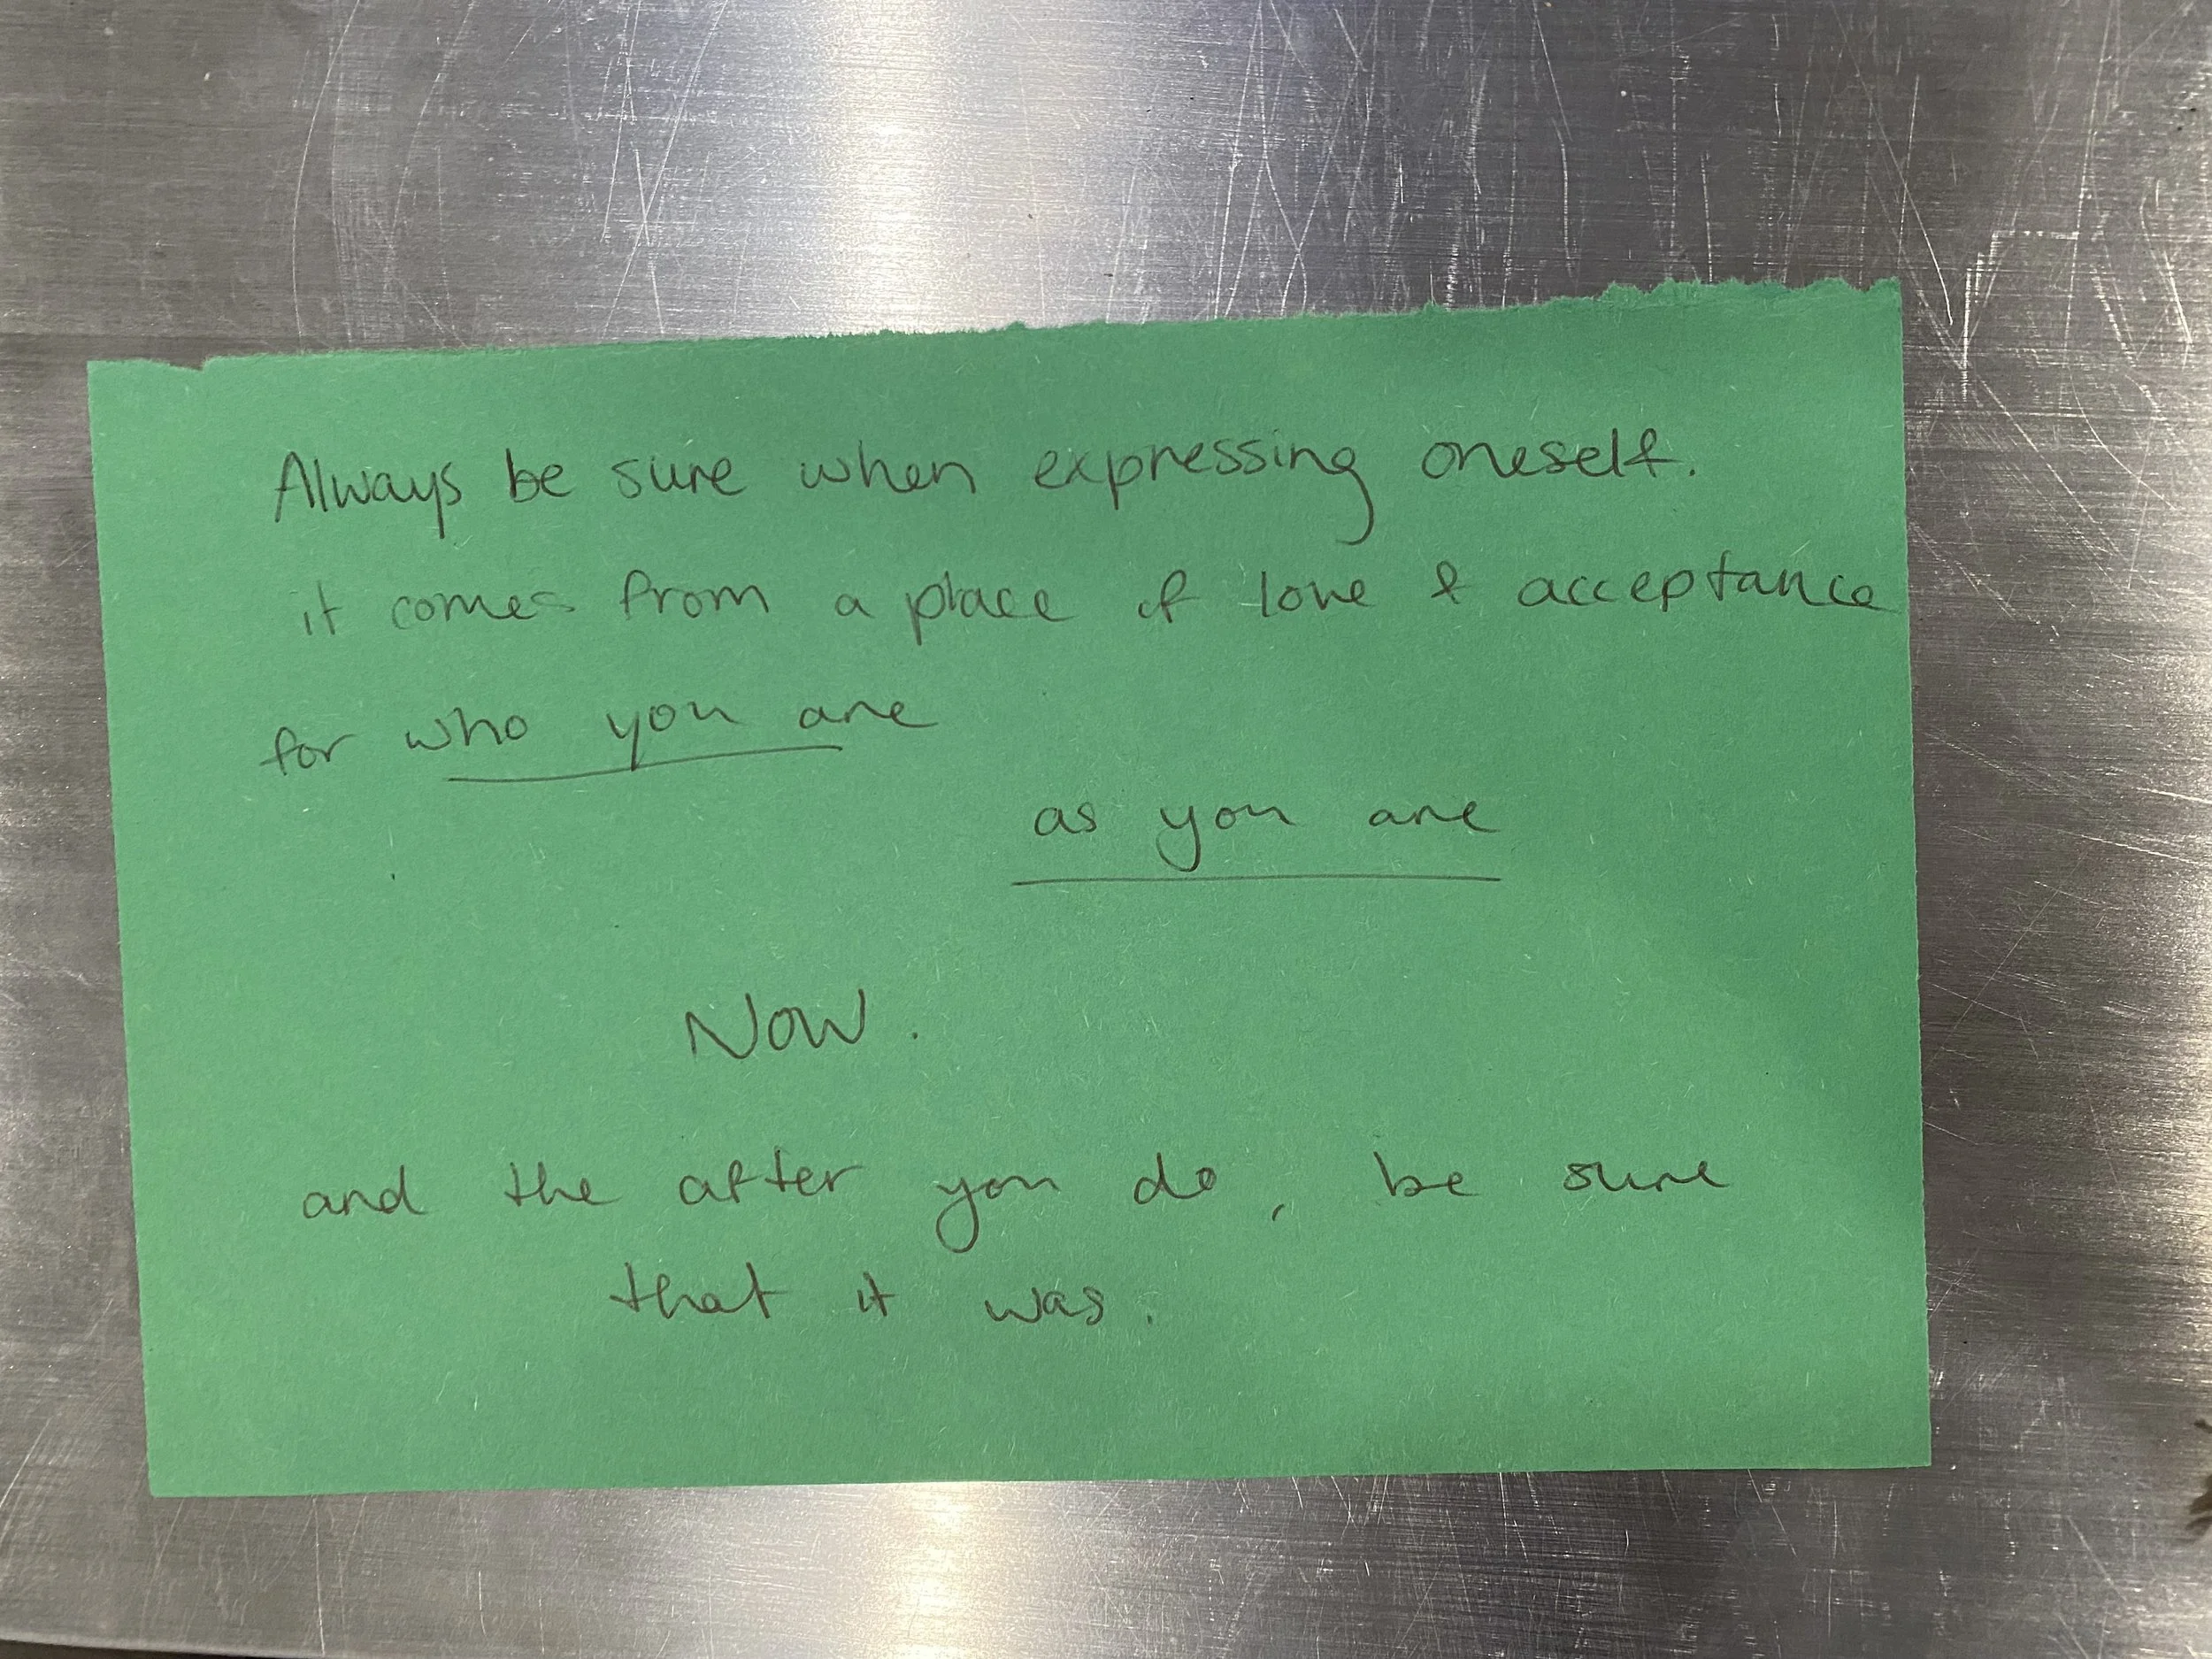 Always be sure when expressing oneself.
it comes from a place of love & acceptance
for who you are
as you are
NOW.
and the after you do, be sure
that it was.